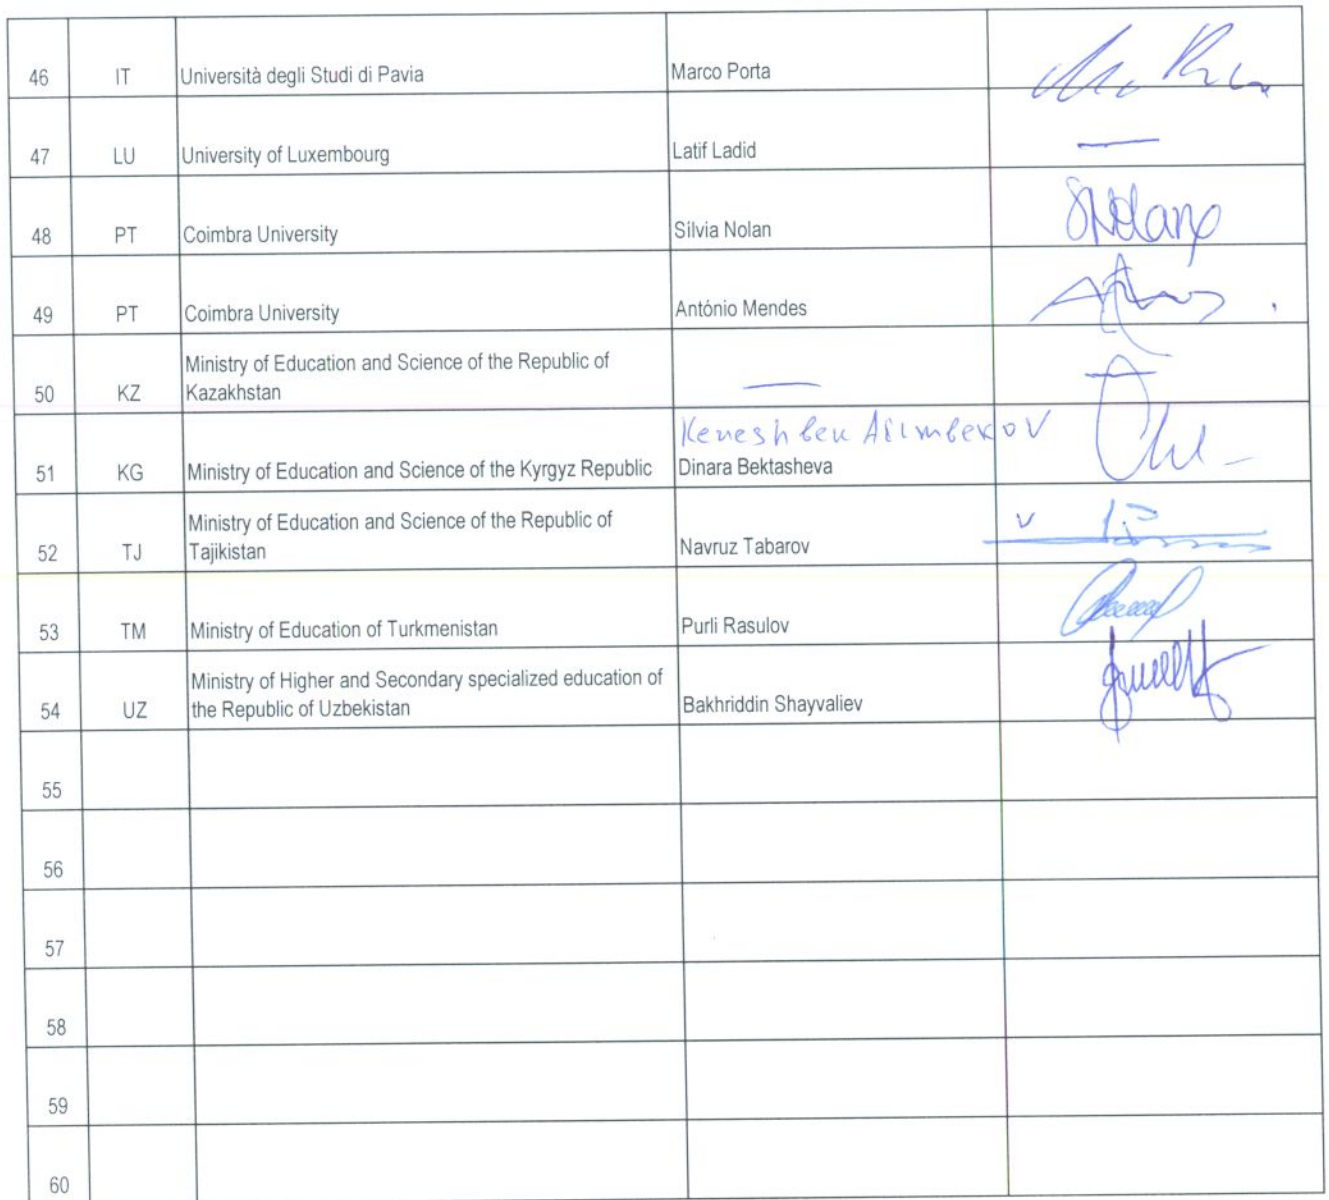 46 IT Università degli Studi di Pavia Marco Porta
47 LU University of Luxembourg Latif Ladid —
48 PT Coimbra University Sílvia Nolan SNolan
49 PT Coimbra University António Mendes
Ministry of Education and Science of the Republic of
50 KZ Kazakhstan —
Keneshbek
51 KG Ministry of Education and Science of the Kyrgyz Republic Dinara Bektasheva
Ministry of Education and Science of the Republic of
52 TJ Tajikistan Navruz Tabarov v
53 TM Ministry of Education of Turkmenistan Purli Rasulov
Ministry of Higher and Secondary specialized education of
54 UZ the Republic of Uzbekistan Bakhriddin Shayvaliev
55
56
57
58
59
60